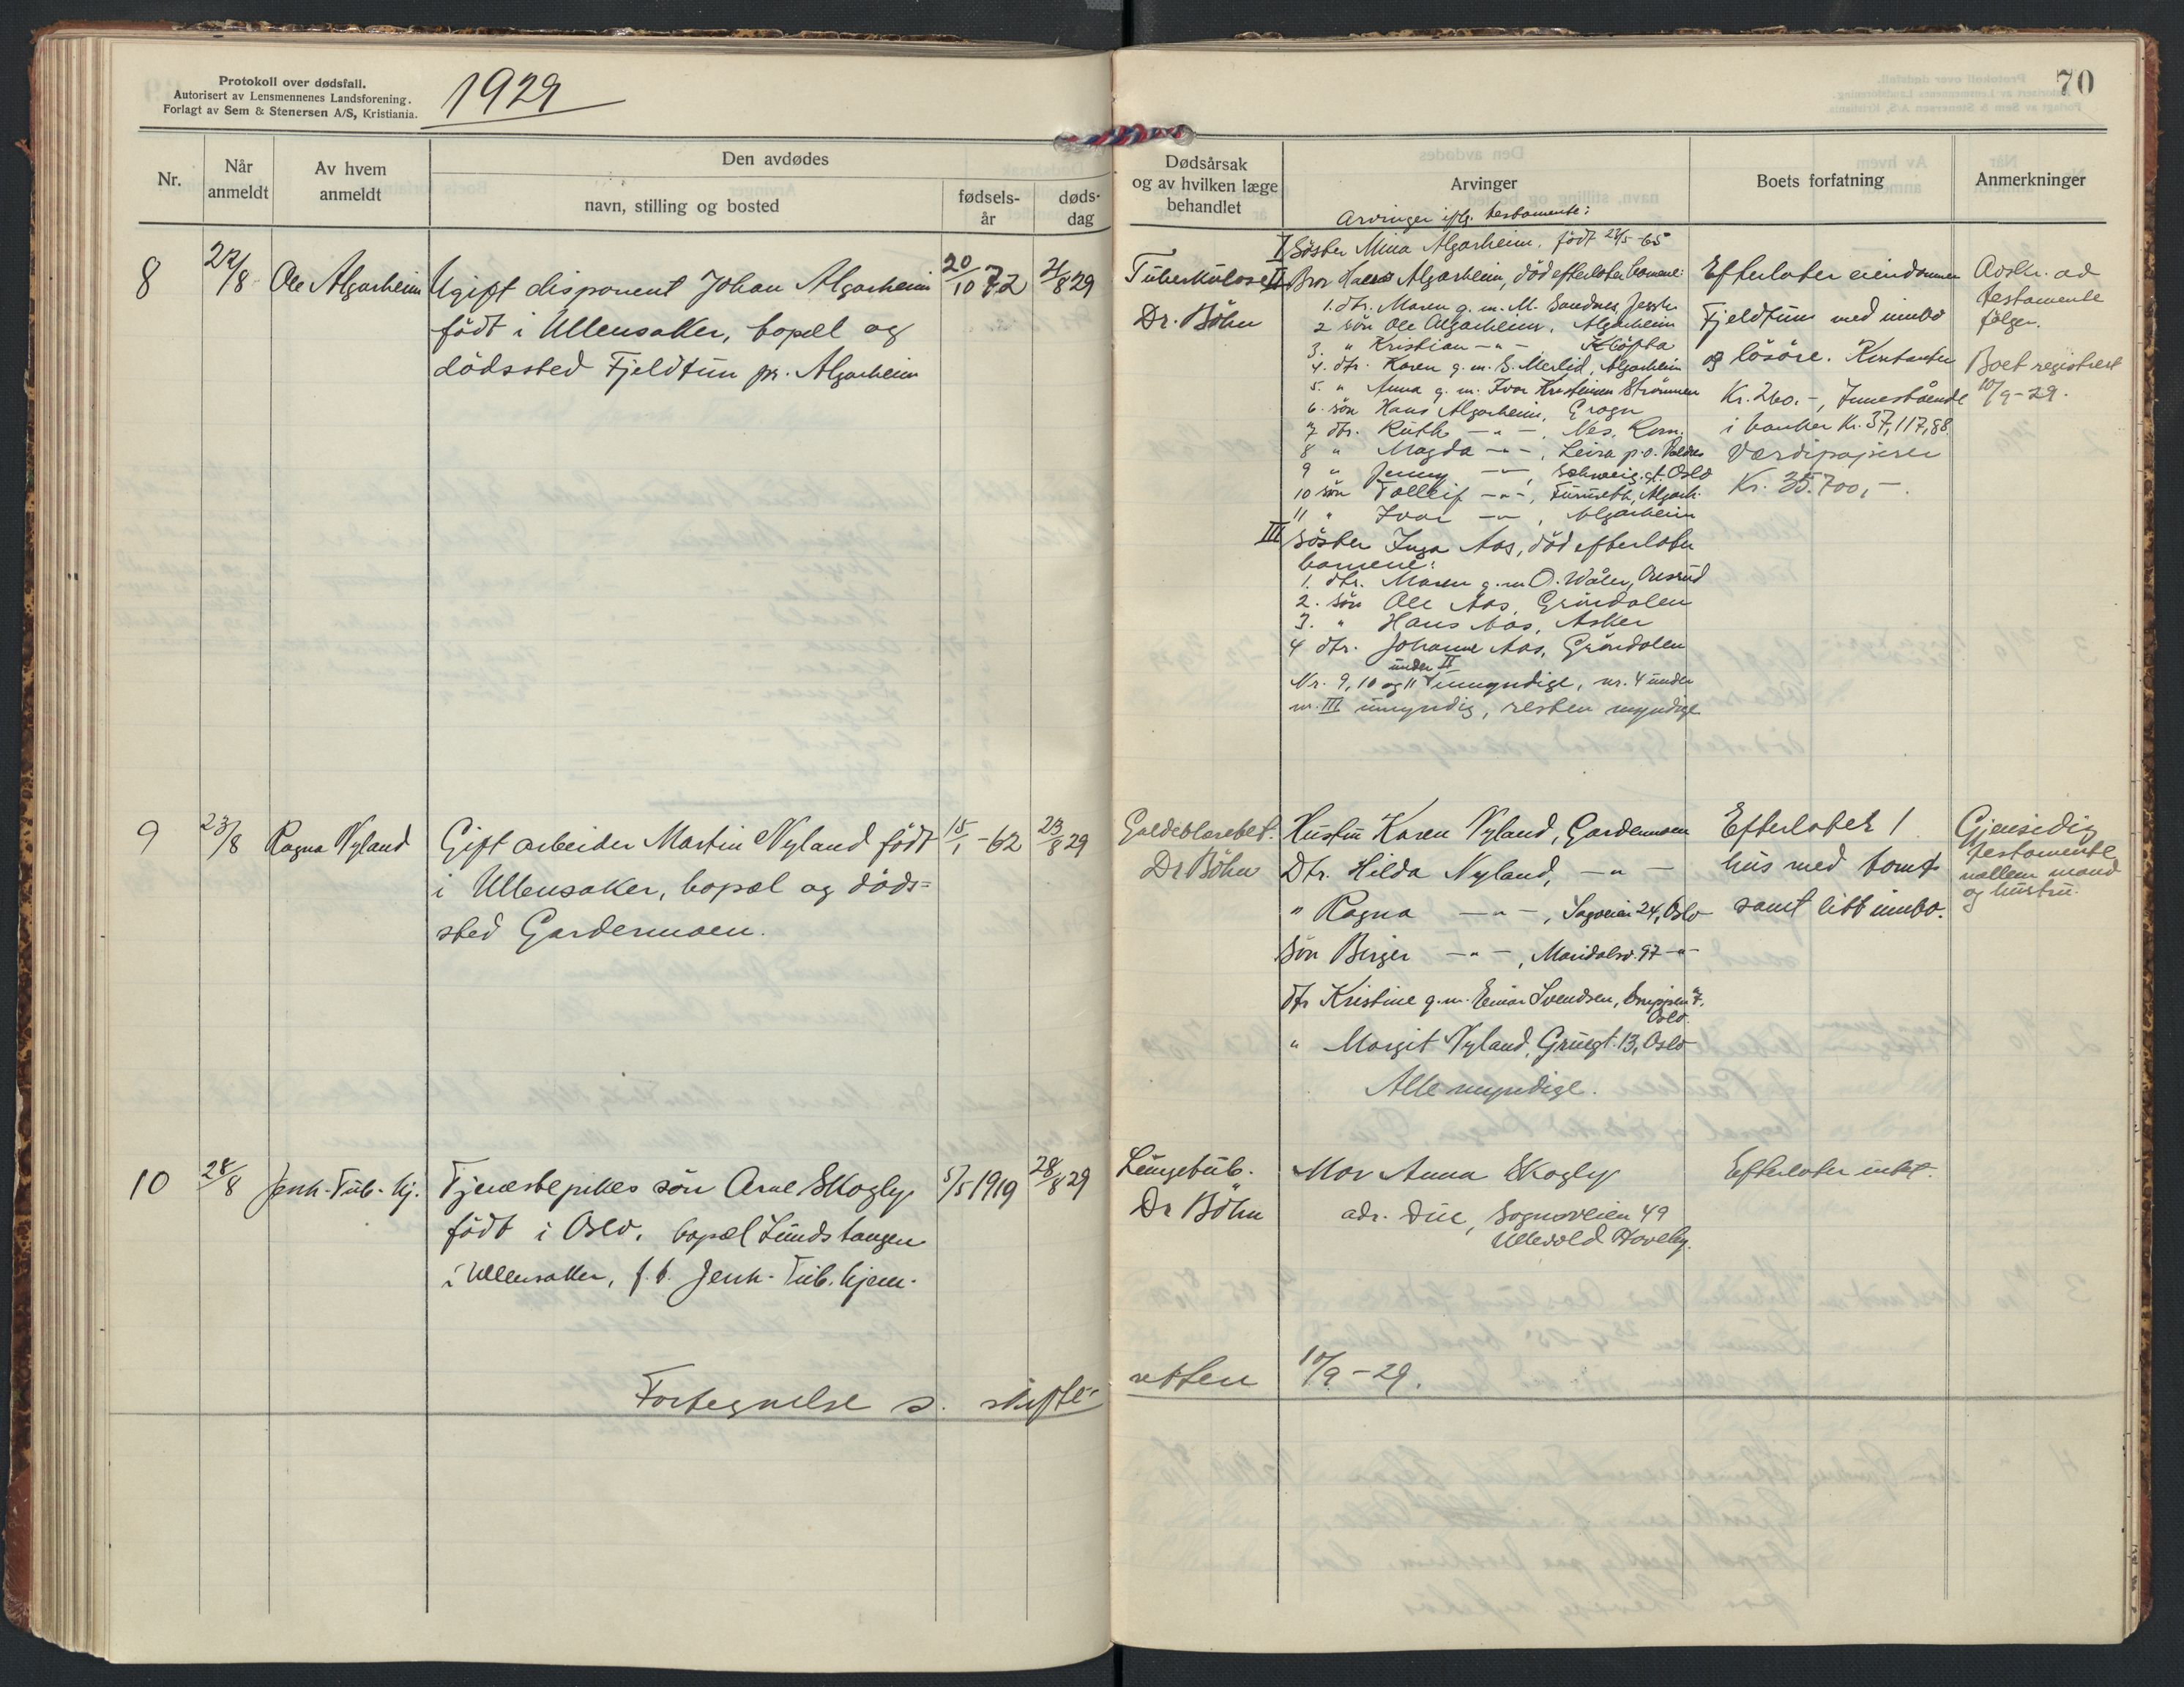 Protokoll over dødsfall.
Autorisert av Lensmennenes Landsforening.
Forlagt av Sem & Stenersen A/S, Kristiania.
1929
70
Nr.
Når anmeldt
Av hvem anmeldt
Den avdødes
navn, stilling og bosted
fødsels-år
døds-dag
Dødsårsak og av hvilken læge behandlet
Arvinger
Boets forfatning
Anmerkninger
8
22/8
Ole Algarheim
Ugift disponent Johan Algarheim
født i Ullensaker, bopæl og
dødssted Fjeldtun pr. Algarheim
20/10 72
21/8 29
Tuberkulose
Dr. Böhn
Arvinger iflg. testamente:
I Søster Mina Algarheim, født 22/5-65
II Bror Hans Algarheim, død efterlater barnene:
1. dtr. Maren g. m. M. Sandnes, Jessh.
2 søn Ole Algarheim, Algarheim
3. " Kristian -"- Kløfta
4. dtr. Karen g. m. S. Merlid, Algarheim
5. " Anna g. m. Ivar Kristiansen Strømmen
6. søn Hans Algarheim, Erogn
7 dtr. Ruth -"-, Nes, Rom.
8 " Magda -"-, Leira p.o. Valdres
9 " Jenny -"-, Schweig. gt. Oslo
10 søn Tolleif -"-, Furuseth, Algarh.
11 " Ivar -"-, Algarheim
III Søster Inga Aas, død efterlater
barnene:
1. dtr. Maren g. m O. Wåler,
2. søn Ole Aas, Grøndalen
3. " Hans Aas, Asker
4 dtr. Johanne Aas, Grøndalen
under II
Nr. 9, 10 og 11 umyndige, nr. 4 under
nr. III umyndig, resten myndige
Efterlater eiendommen
Fjeldtun med innbo
og løsøre. Kontanter
Kr. 260.-, Innestående
i banker Kr. 37,117,88.
Værdipapirer
Kr. 35.700,-.
Avskr. av
testamente
følger.
Boet registrert
10/9-29.
9
23/8
Ragna Nyland
Gift arbeider Martin Nyland født
i Ullensaker, bopæl og døds=
sted Gardermoen.
15/1-62
23/8 29
Galdeblærebet.
Dr Böhn
Hustru Karen Nyland, Gardermoen
Dtr. Hilda Nyland, -"-
" Ragna -"-, Sagveien 24, Oslo
Søn Birger -"-, Maridalsv. 97 -"-
dtr Kristine g. m. Einar Svendsen,
Oslo.
" Margit Nyland, Grüngt. 13, Oslo
Alle myndige.
Efterlater 1
hus med tomt
samt litt innbo.
Gjensidig
testamente
mellem mand
og hustru.
10
28/8
Jenh. Tub. hj.
Tjenestepikes søn Arne Skogly
født i Oslo, bopæl Lundstangen
i Ullensaker, f. t. Jenh. Tub. hjem.
5/5 1919
28/8 29
Lungetub.
Dr Böhn
Mor Anna Skogly
adr. Due, Sognsveien 49
Ullevold Haveby.
Efterlater intet.
Fortegnelse s. skifte-
retten 10/9-29.